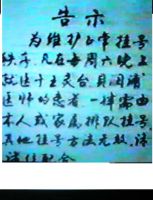 告示
为维护正常挂号
秩序,凡在每周六晚上
就医于王灸台具国靖
医师的患者,一律需由
本人或家属排队挂号,
其他挂号方法无效,请
诸位配合